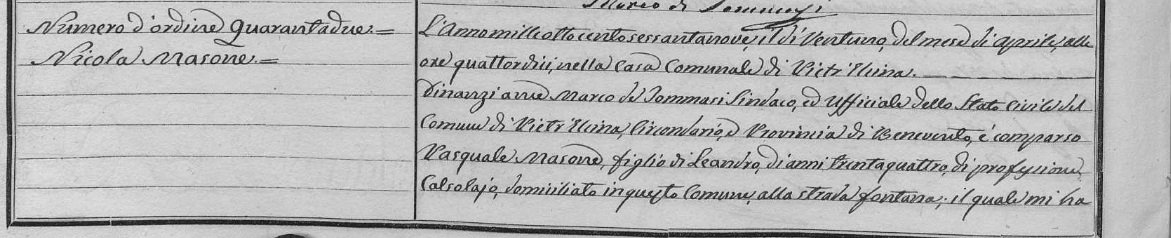 Marco de Tommasi
Numero d'ordine Quarantadue =
Nicola Masone =
L'Anno mille ottocento sessantanove, il dì Ventuno, del mese di Aprile, alle
ore quattordici, nella Casa Comunale di
Dinanzi a me Marco de Tommasi Sindaco, ed Ufficiale dello Stato Civile del
Comune di Circondario, e Provincia di Benevento, è comparso
Pasquale Masone, figlio di Leandro, di anni trentaquattro, di professione
Calsolajo, domiciliato in questo Comune, alla strada fontana, il quale mi ha